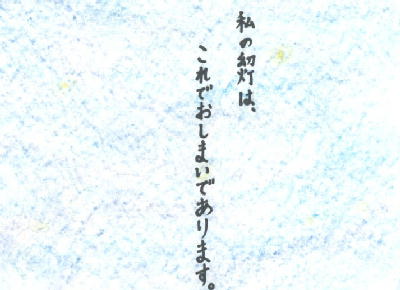 私の幻灯は、
これでおしまいであります。